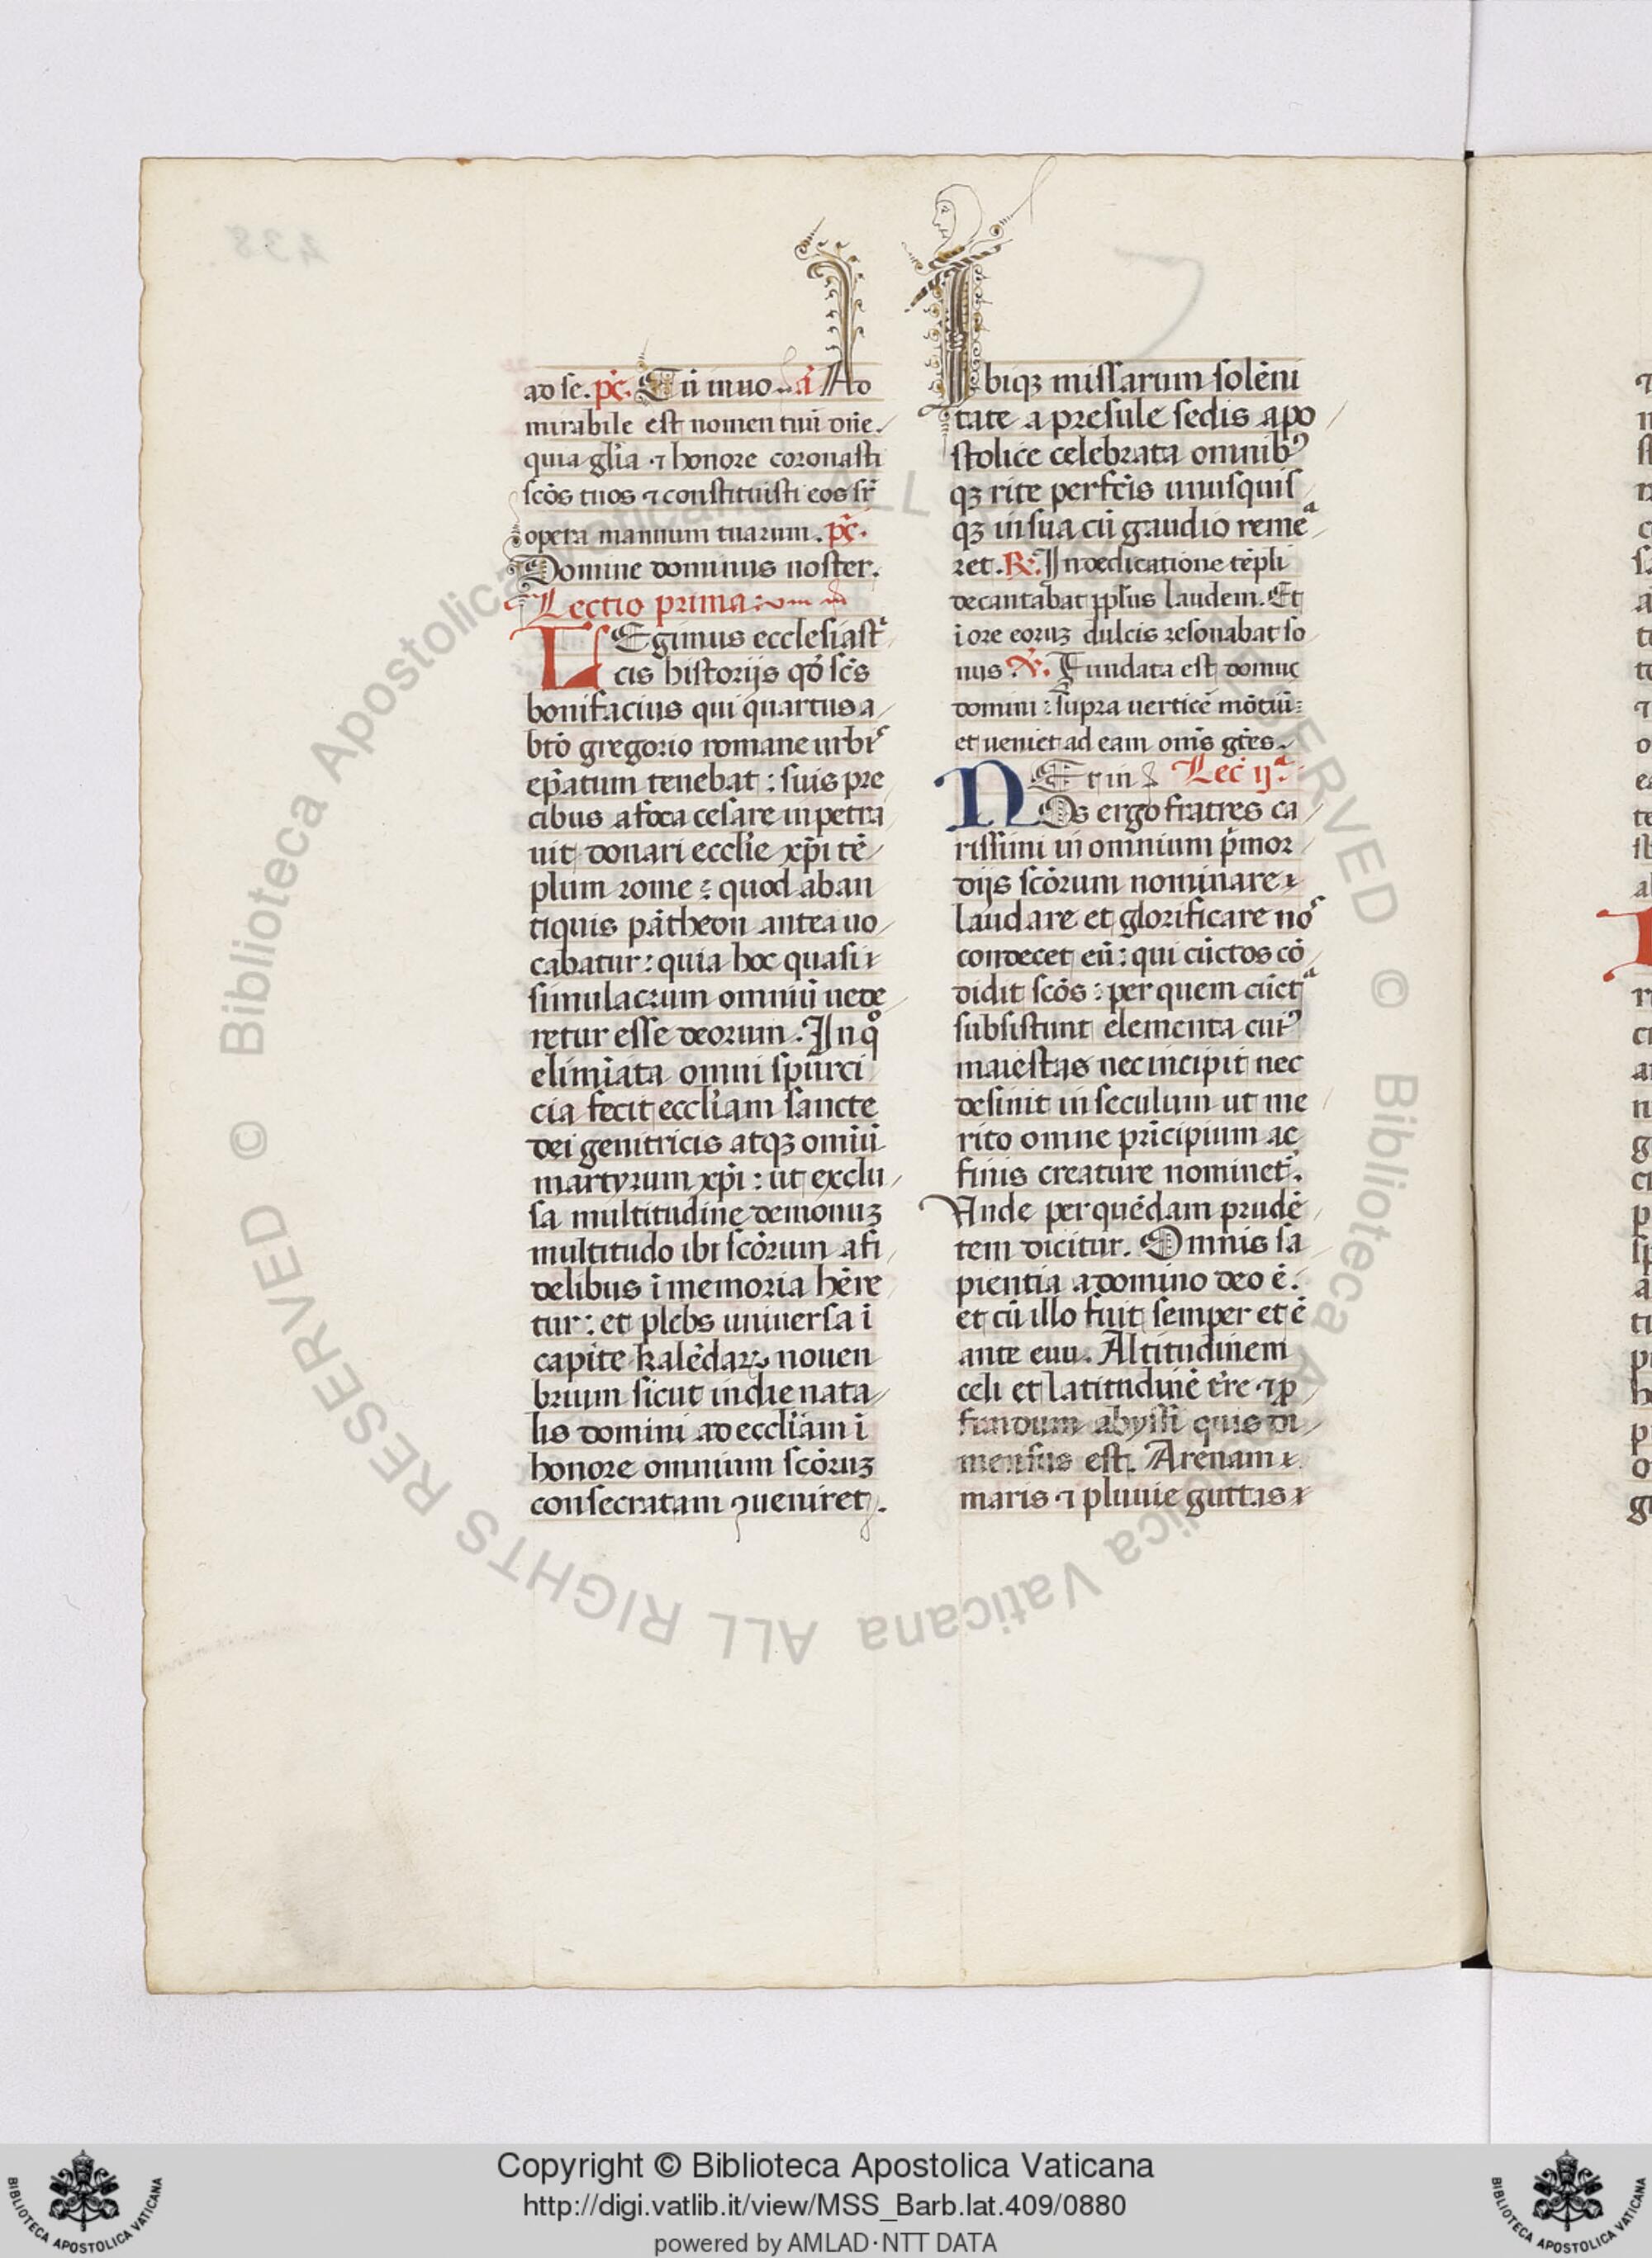 ad se. ps̄. Cū inuo. a᷑ Ad
mirabile est nomen tuū dn̄e.
quia gl̓ia ⁊ honore coronasti
sc̄os tuos ⁊ constituisti eos sr̄
opera manuum tuarum. ps̄.
Domine dominus noster.
Lectio prima:
LEgimus ecclesiasti
cis historijs qđ sc̄s
bonifacius qui quartus a
bt̄o gregorio romane urbis
ep̄atum tenebat: suis pre
cibus a foca cesare inpetra
uit donari eccl̓ie xp̄i tē
plum rome: quod aban
tiquis pātheon antea uo
cabatur: quia hoc quasi
simulacrum omniū uide
retur esse deorum. In qͦ
elimīata omni spurci
cia fecit eccl̓iam sancte
dei genitricis atqꝫ omīū
martyrum xp̄i: ut exclu
sa multitudine demonuꝫ
multitudo ibi sc̄orum a fi
delibus ī memoria hēre
tur: et plebs uniuersa ī
capite kalēdaꝝ nouen
brium sicut in die nata
lis domini ad eccl̓iam ī
honore omnium sc̄oruꝫ
consecratam ꝯueniret.
Ibiqꝫ missarum solēni
tate a presule sedis apo
stolice celebrata omnibꝰ
qꝫ rite perfc̄is unusquis
qꝫ in sua cū gaudio remea
ret. R̄. In dedicatione tēpli
decantabat pp̄lus laudem. Et
ī ore eoruꝫ dulcis resonabat so
nus. V̄. Fundata est domus
domini: supra uerticē mōtiū:
et ueniet ad eam om̄s gt̄es.
Et in Lec̄ ijᵃ.
NOs ergo fratres ca
rissimi in omnium p̄mor
dijs sc̄orum nominare
laudare et glorificare nos
condecet eū: qui cūctos cō
didit sc̄os: per quem cūctᵃ
subsistunt elementa cuiꝰ
maiestas nec incipit nec
desinit in seculum ut me
rito omne prīcipium ac
finis creature nominet᷑.
Unde per quēdam prudē
tem dicitur. Omnis sa
pientia a domino deo ē.
et cū illo fuit semper et ē
ante euu. Altitudinem
celi et latitudinē tr̄e ⁊ ꝓ
fundum abyssi quis di
mensus est. Arenam
maris ⁊ pluuie guttas
438
© Biblioteca Apostolica Vaticana ALL RIGHTS RESERVED © Biblioteca Apostolica Vaticana ALL RIGHTS RESERVED
Copyright © Biblioteca Apostolica Vaticana
http://digi.vatlib.it/view/MSS_Barb.lat.409/0880
powered by AMLAD·NTT DATA
BIBLIOTECA APOSTOLICA VATICANA
BIBLIOTECA APOSTOLICA VATICANA